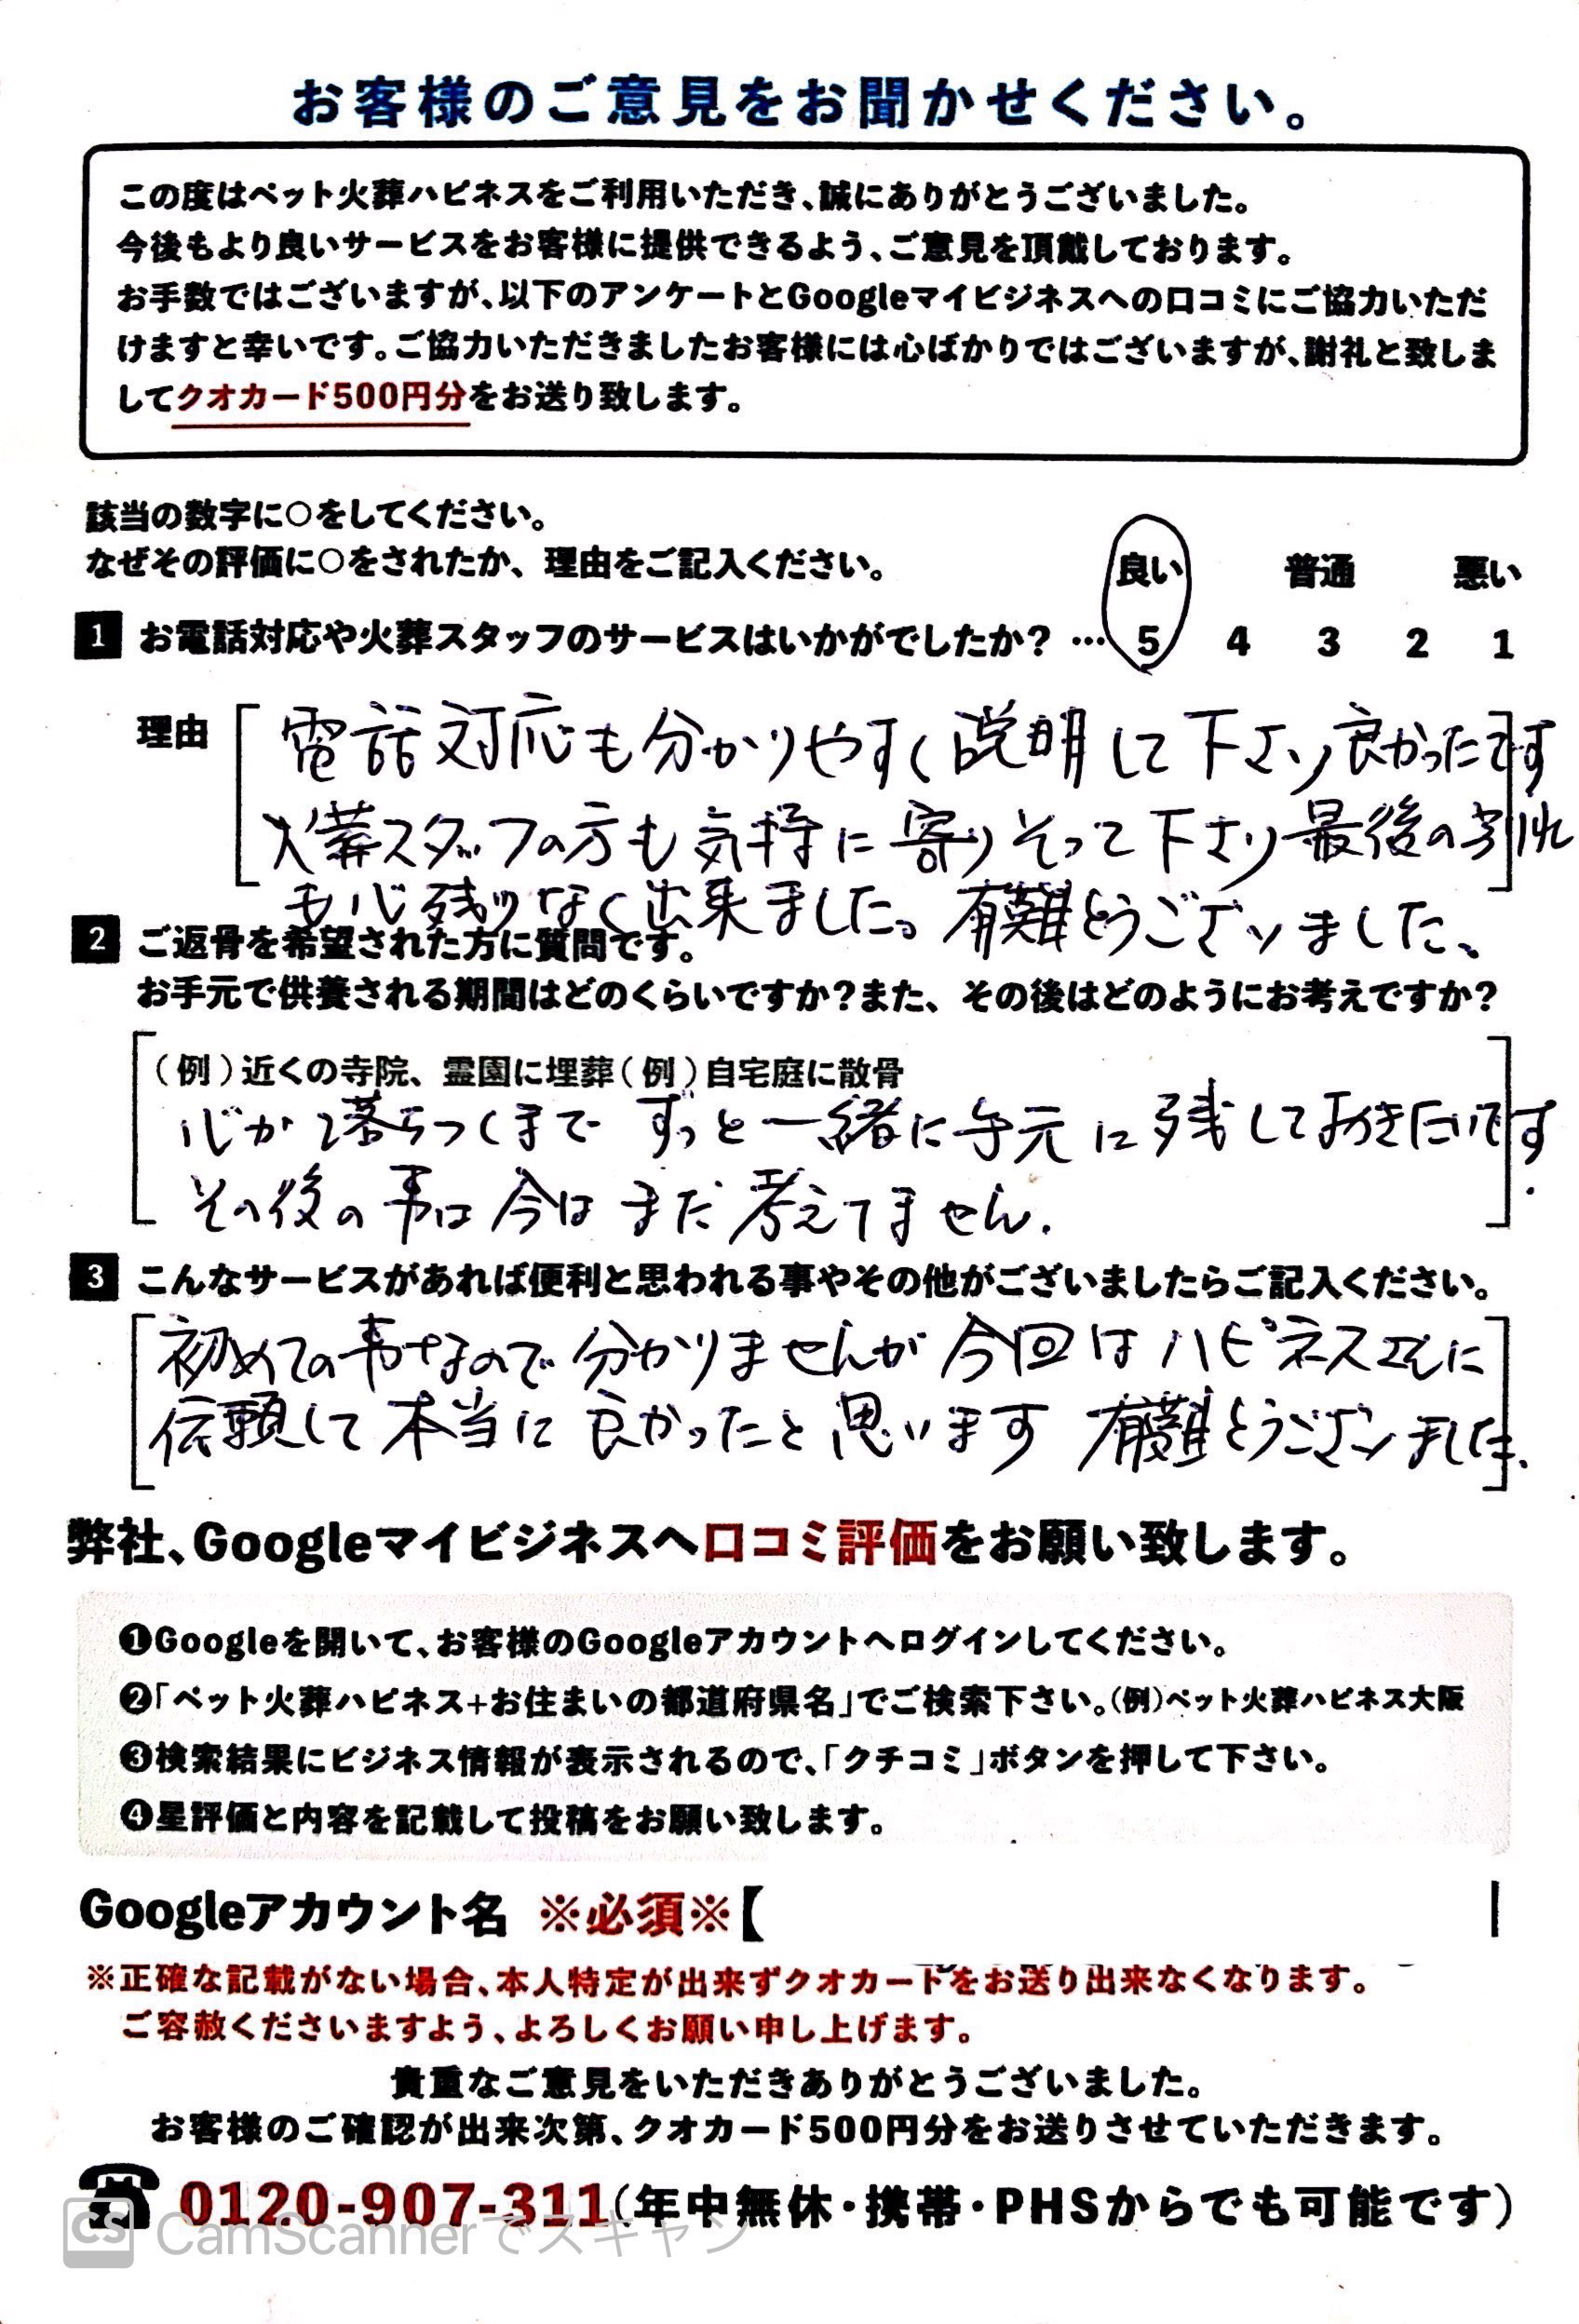 お客様のご意見をお聞かせください。
この度はペット火葬ハピネスをご利用いただき、誠にありがとうございました。
今後もより良いサービスをお客様に提供できるよう、ご意見を頂戴しております。
お手数ではございますが、以下のアンケートとGoogleマイビジネスへの口コミにご協力いただ
けますと幸いです。ご協力いただきましたお客様には心ばかりではございますが、謝礼と致しま
してクオカード500円分をお送り致します。
該当の数字に○をしてください。
なぜその評価に○をされたか、理由をご記入ください。 良い 普通 悪い
1 お電話対応や火葬スタッフのサービスはいかがでしたか？ … 5 4 3 2 1
理由 電話対応も分かりやすく説明して下さり良かったです
火葬スタッフの方も気持に寄りそって下さり最後の別れ
も心残りなく出来ました。有難とうございました、
2 ご返骨を希望された方に質問です。
お手元で供養される期間はどのくらいですか？また、その後はどのようにお考えですか？
（例）近くの寺院、霊園に埋葬（例）自宅庭に散骨
心が落ちつくまで ずっと一緒に手元に残しておきたいです
その後の事は今はまだ考えてません.
3 こんなサービスがあれば便利と思われる事やその他がございましたらご記入ください。
初めての事なので分かりませんが今回はハピネスさんに
依頼して本当に良かったと思います 有難とうございました.
弊社、Googleマイビジネスへ口コミ評価をお願い致します。
❶Googleを開いて、お客様のGoogleアカウントへログインしてください。
❷「ペット火葬ハピネス+お住まいの都道府県名」でご検索下さい。（例）ペット火葬ハピネス大阪
❸検索結果にビジネス情報が表示されるので、「クチコミ」ボタンを押して下さい。
❹星評価と内容を記載して投稿をお願い致します。
Googleアカウント名 ※必須※【
※正確な記載がない場合、本人特定が出来ずクオカードをお送り出来なくなります。
ご容赦くださいますよう、よろしくお願い申し上げます。
貴重なご意見をいただきありがとうございました。
お客様のご確認が出来次第、クオカード500円分をお送りさせていただきます。
0120-907-311（年中無休・携帯・PHSからでも可能です）
CS CamScannerでスキャン